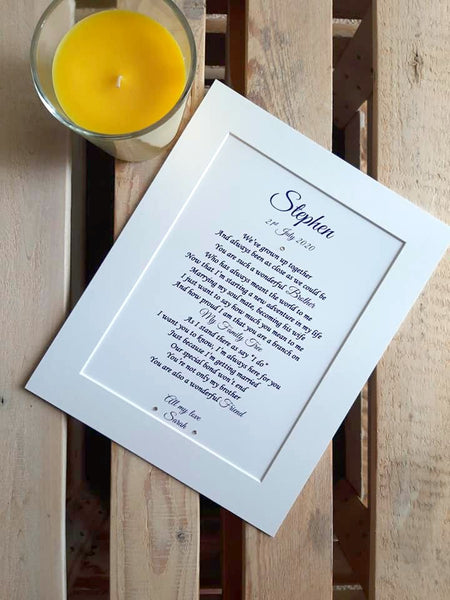 Stephen
21st July 2020
We've grown up together
And always been as close as we could be
You are such a wonderful Brother
Who has always meant the world to me
Now that I'm starting a new adventure in my life
Marrying my soul mate, becoming his wife
I just want to say how much you mean to me
And how proud I am that you are a branch on
My Family Tree
As I stand there as say "I do"
I want you to know, I'm always here for you
Just because I'm getting married
Our special bond won't end
You're not only my brother
You are also a wonderful Friend
All my love
Sarah